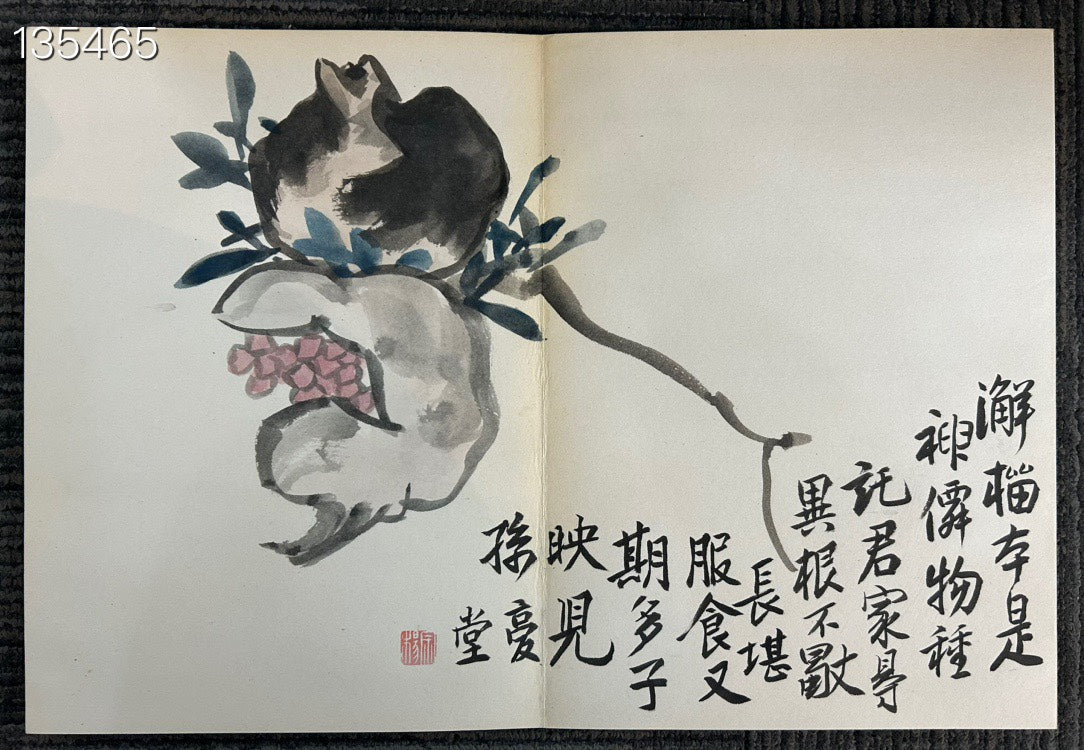 135465
澥榴本是
神僊物種
託君家
異根不
長堪
服食又
期多子
映兒
孫
堂